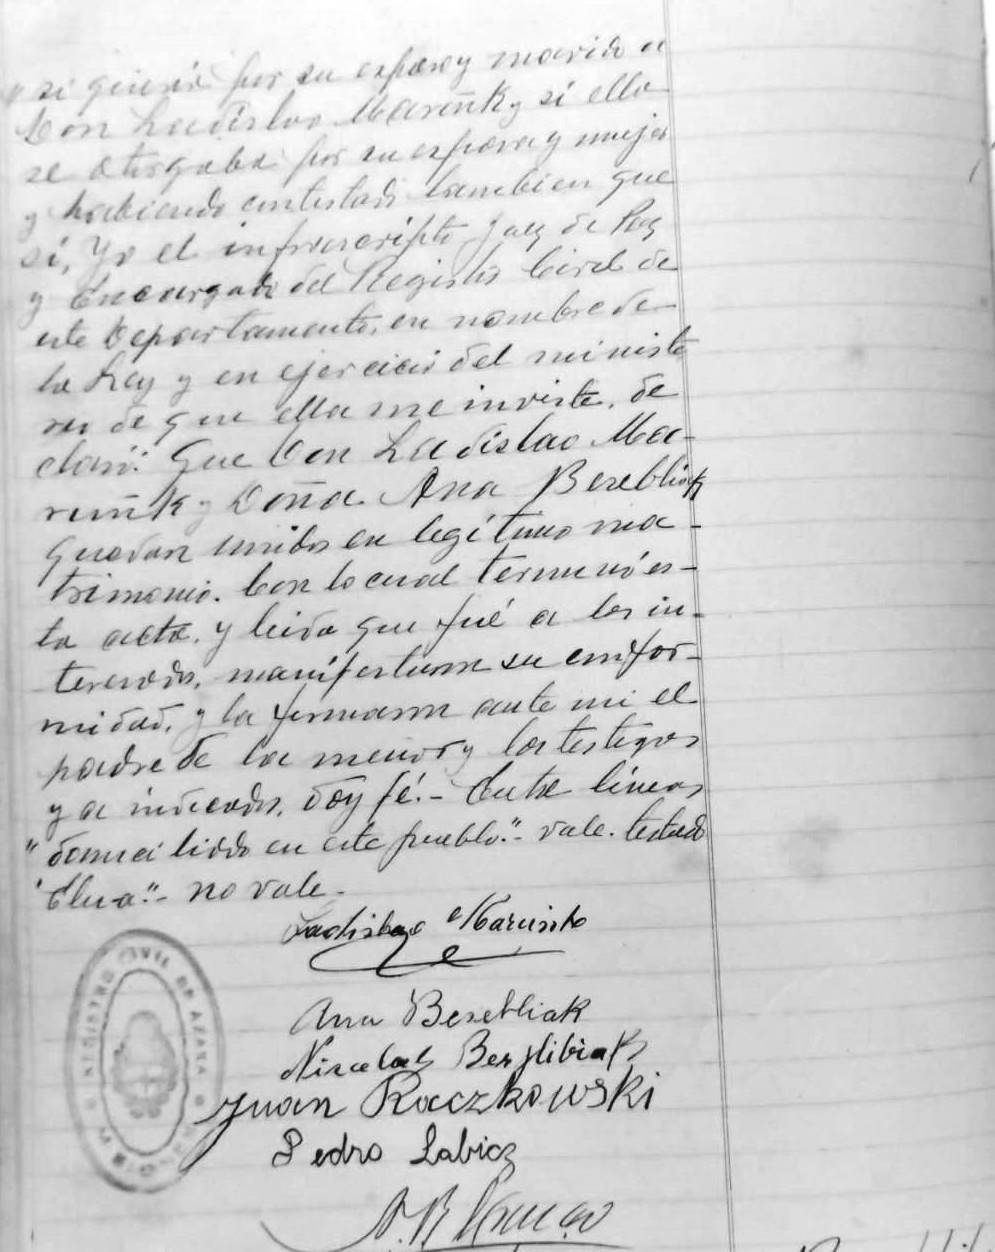 si queria por su esposo y marido a
Don Ladislao Maruñk y si ella
se otorgaba por su esposa y mujer
y habiendo contestado tambien que
sí, Yo el infrascripto Juez de Paz
y Encargado del Registro Civil de
este Departamento, en nombre de
la Ley y en ejercicio del ministe
rio de que ella me inviste, de
claro: Que Don Ladislao Ma-
ruñk y Doña Ana Besebliak
quedan unidos en legítimo ma-
trimonio. Con lo cual terminó es-
ta acta, y leida que fué a los in-
teresados, manifestaron su confor-
midad, y la firmaron ante mi el
padre de la menor y los testigos
ya indicados, doy fé.- Entre líneas
"domiciliado en este pueblo".- vale. testado
no vale.-
Ladislao
Ana Besebliak
Juan Raczkowski
Pedro Labicz
REGISTRO CIVIL DE AZARA
MISIONES